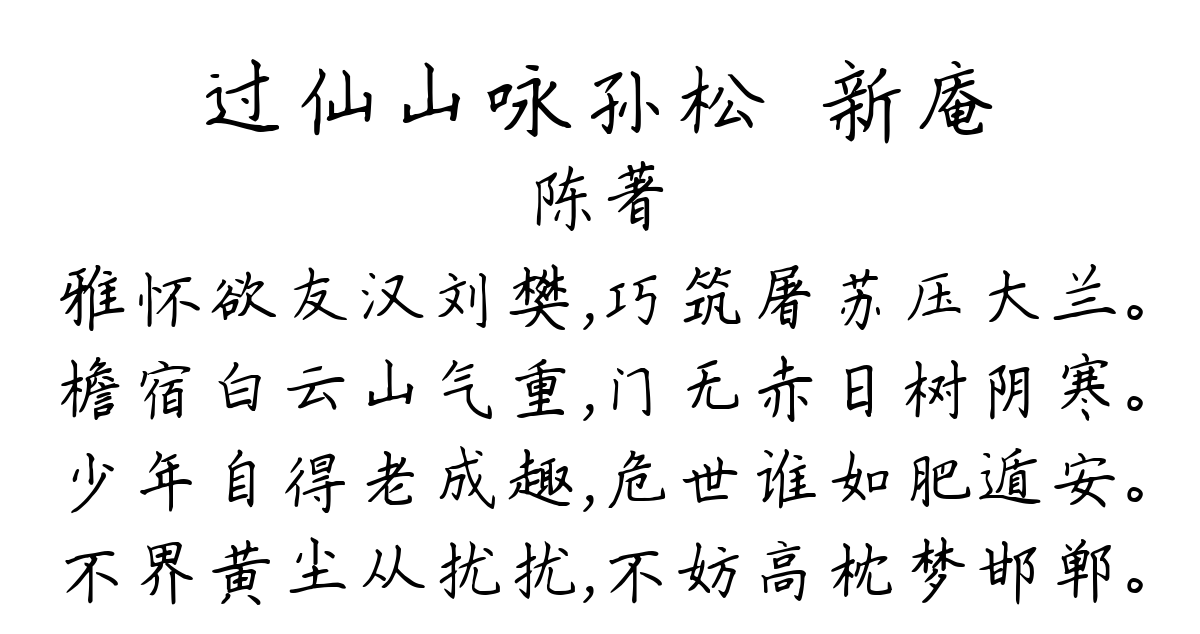 过仙山咏孙松 新庵
陈著
雅怀欲友汉刘樊,巧筑屠苏压大兰。
檐宿白云山气重,门无赤日树阴寒。
少年自得老成趣,危世谁如肥遁安。
不界黄尘从扰扰,不妨高枕梦邯郸。